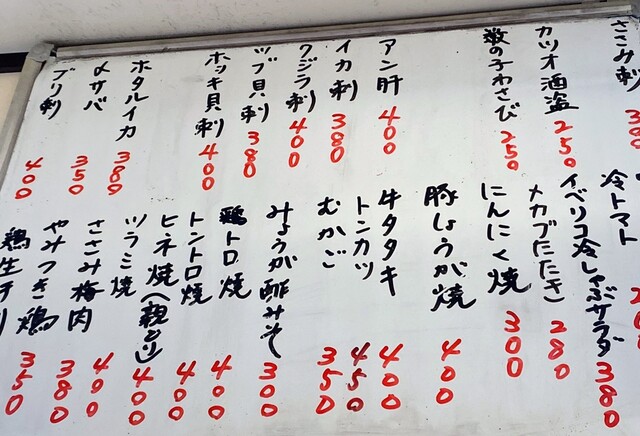 ささみ刺 380
カツオ酒盗 250
数の子わさび 250
アン肝 400
イカ刺 380
クジラ刺 400
ツブ貝刺 380
ホッキ貝刺 400
ホタルイカ 380
〆サバ 350
ブリ刺 400
冷トマト
イベリコ冷しゃぶサラダ 380
メカブたたき 280
にんにく焼 300
豚しょうが焼 400
牛タタキ 400
トンカツ 450
むかご 350
みょうが酢みそ 300
鶏トロ焼 400
トントロ焼 400
ヒネ焼(親どり) 400
ツラミ焼 400
ささみ梅肉 400
やみつき鶏 380
鶏生 350